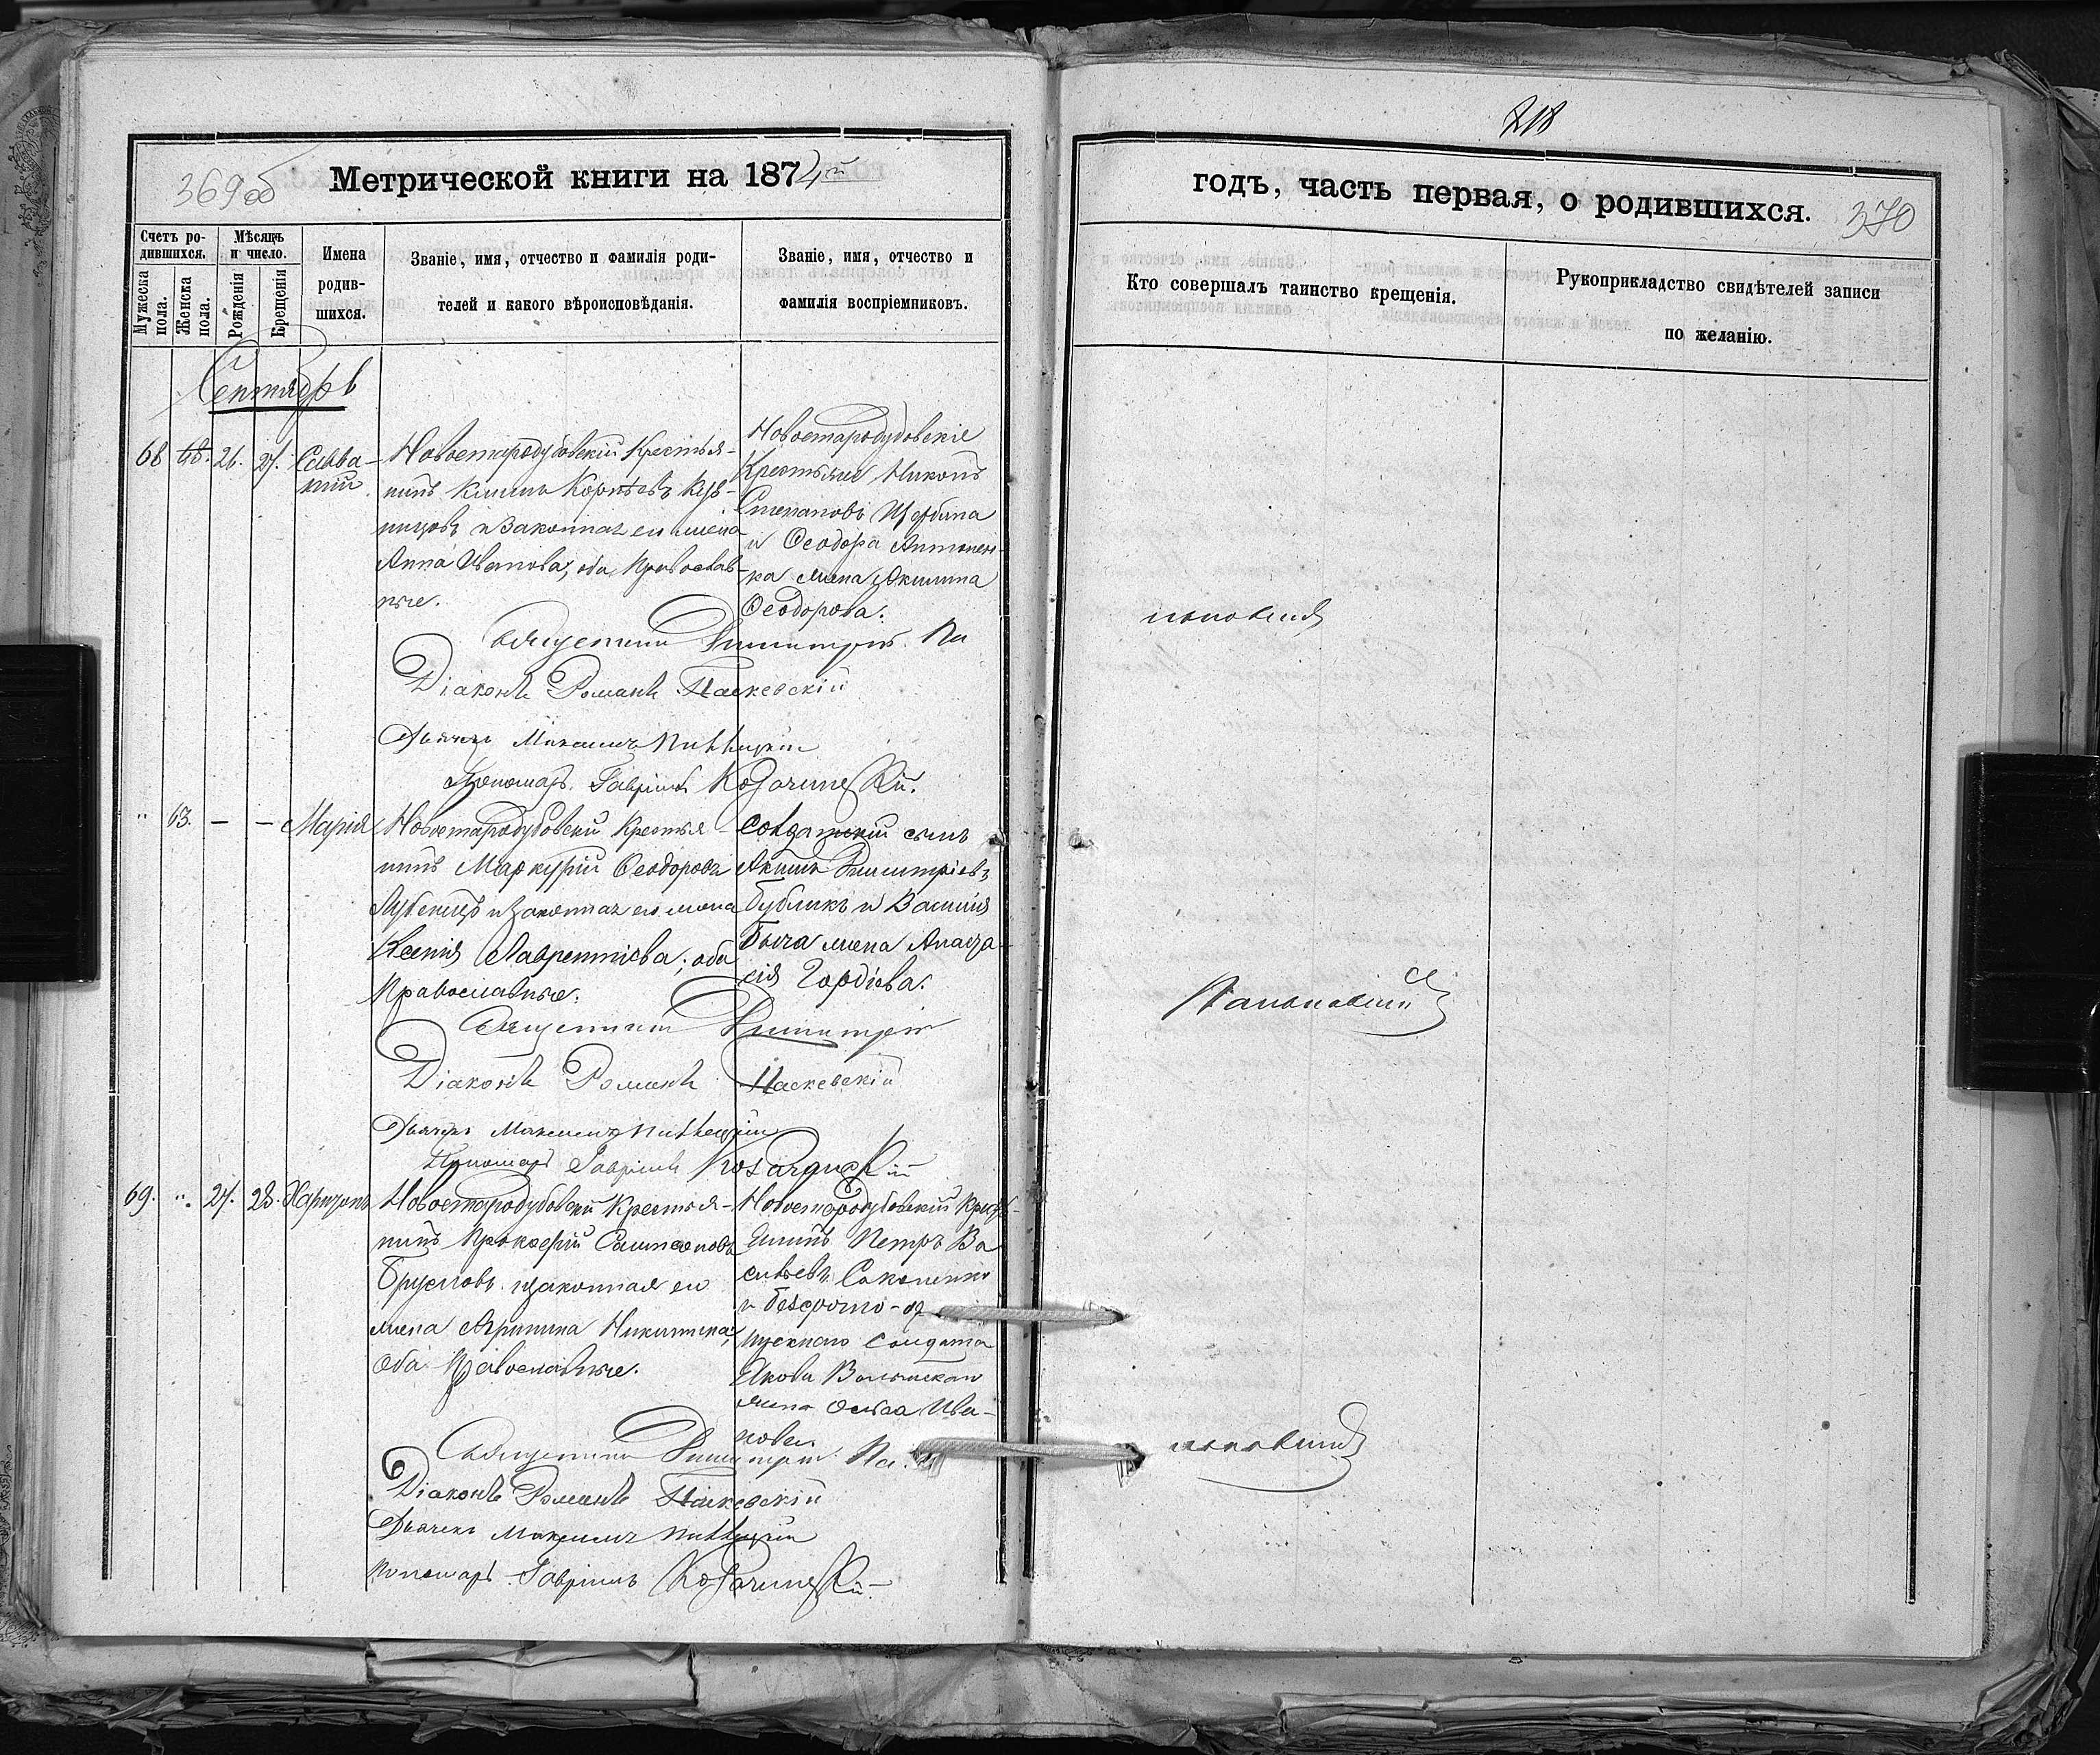 218
369 об
Метрической книги на 1874й
годъ, часть первая, о родившихся.
370
Счетъ ро-
дившихся.
Мужеска
пола.
Женска
пола.
Мѣсяцъ
и число.
Рожденія
Крещенія
Имена
родив-
шихся.
Званіе, имя, отчество и фамилія роди-
телей и какого вѣроисповѣданія.
Званіе, имя, отчество и
фамилія воспріемниковъ.
Кто совершалъ таинство крещенія.
Рукоприкладство свидѣтелей записи
по желанію.
Сентябрь
68
26. 27.
Савва-
тий
Новостародубовскій Крестья-
нинъ Климъ Корнѣевъ
и законная его жена
Анна Иванова, оба Православ-
ные.
Новостародубовскіе
Крестьяне Никонъ
Степановъ Щербина
и Ѳеодора Антонен-
ка жена Акилина
Ѳеодорова.
Священникъ Димитрій По
поновскій
Діаконъ Романъ Паскевскій
Дьячекъ Максимъ
Пономарь Гавріилъ Косачинскій.
" 63. — — Марія
Новостародубовскій Крестья-
нинъ Меркурій Ѳеодоровъ
Лубенецъ и законная его жена
Ксенія Лаврентіева; оба
Православные.
Солдатскій сынъ
Акимъ Димитріевъ
Бубликъ и Василія
жена Анаста-
сія Гордіева.
Священникъ Димитрій
Діаконъ Романъ Паскевскій
Дьячекъ Максимъ
Пономарь Гавріилъ Косачинскій
69. " 27. 28. Харитонъ
Новостародубовскій Крестья-
нинъ Прокофій Самсоновъ
и законная его
жена Агрипина Никитина;
оба Православные.
Новостародубовскій Кресть-
янинъ Петръ Ва
сильевъ
и безсрочно-от
пускного солдата
Якова
жена Ольга Ива-
нова.
Священникъ Димитрій По
поновскій
Діаконъ Романъ Паскевскій
Дьячекъ Максимъ
Пономарь Гавріилъ Косачинскій